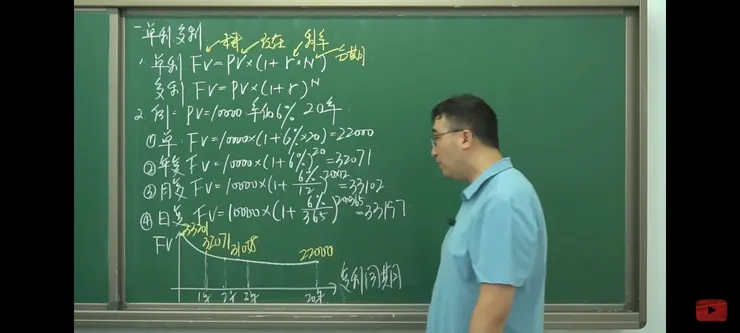 一 单利多利
未来 现在 利率
1. 单利 FV=PV×(1+r×N) 每期
多利 FV=PV×(1+r)^N
2. 例: PV=10000 年化6% 20年
① 单: FV=10000×(1+6%×20)=22000
② 年复 FV=10000×(1+6%)^20=32071
③ 月复 FV=10000×(1+6%/12)^20×12=33102
④ 日复 FV=10000×(1+6%/365)^20×365=33197
FV 33201 32071 22000
1年 2年 20年 复利间期